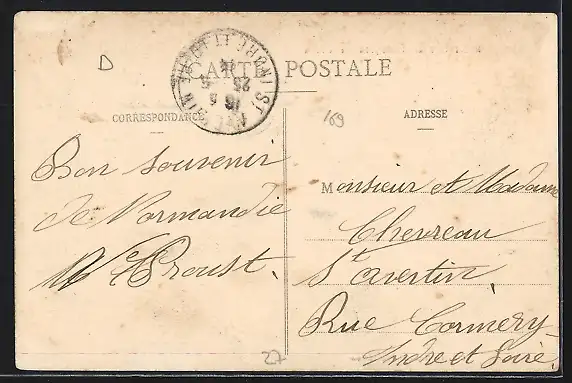 D
CARTE POSTALE
CORRESPONDANCE
ADRESSE
169
Bon souvenir
de Normandie
Proust.
Monsieur et Madame
Chevreau
St avertin,
Rue Cormery
Indre et Loire,
27
ST AVERTIN
INDRE ET LOIRE